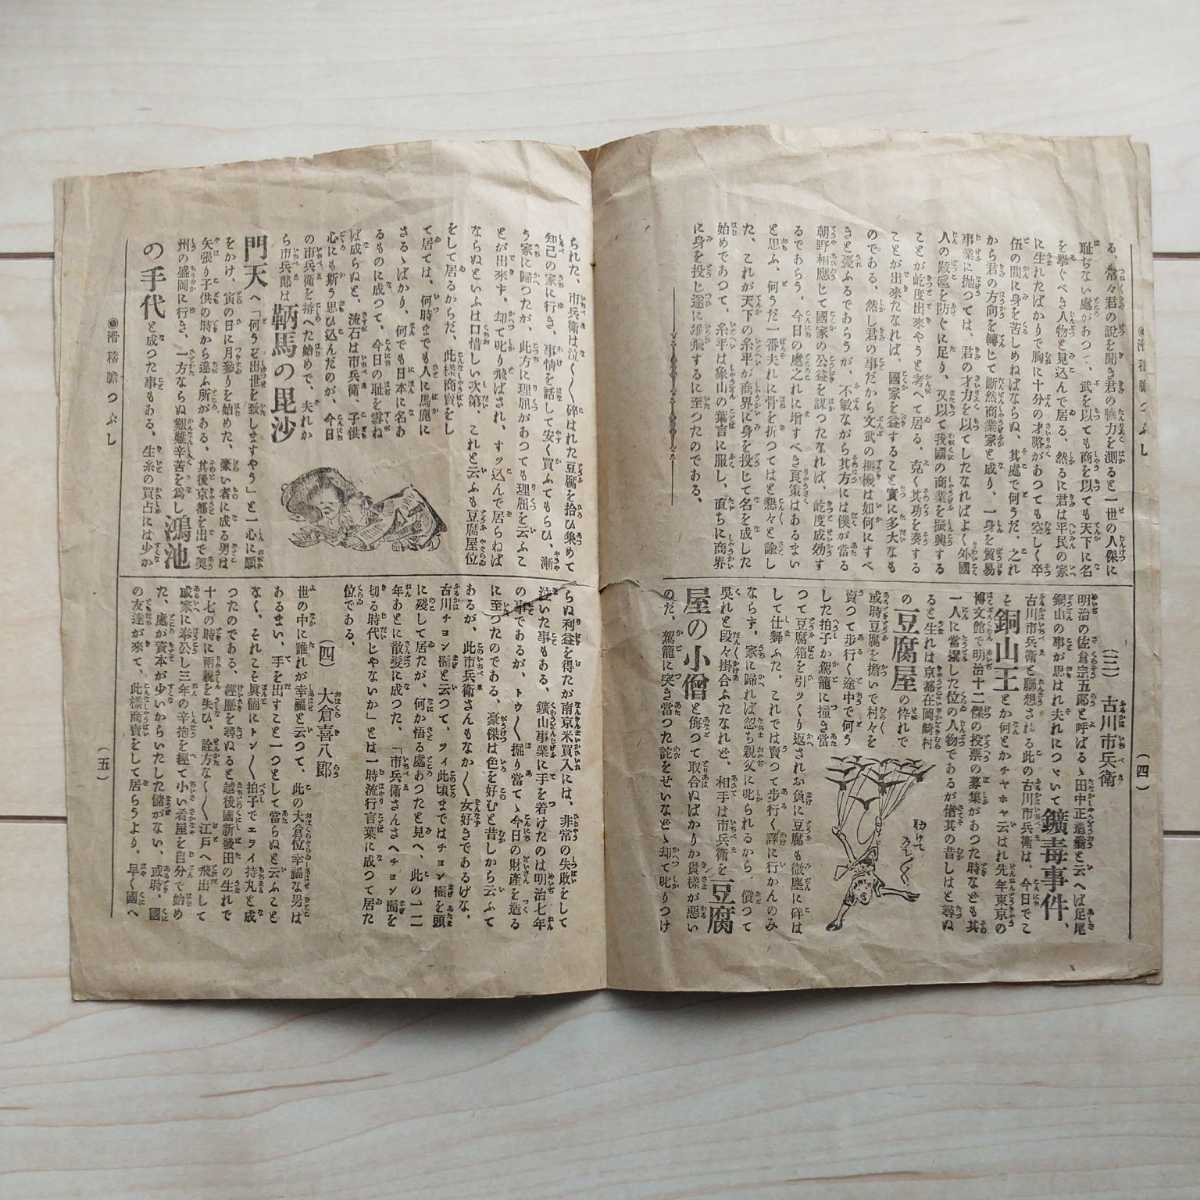 る、常々君の説を聞き君の強力を測ると一世の人傑に
耻ぢない處があつて、武を以ても商を以ても天下に名
を擧ぐべき人物と見込んで居る、然るに君は平民の家
に生れたばかりで胸に十分の才略があつても空しく卒
伍の間に身を苦しめねばならぬ、其處で何うだ、之れ
から君の方向を轉じて斷然商業家と成り、一身を貿易
事業に抛つては、君の才力を以てしたなればよく外國
人の跋扈を防ぐに足り、又以て我國の商業を振興する
ことが屹度出來やうと考へて居る、克く其功を奏する
ことが出來たなれば、國家を益すること實に多大なも
のである、然し君の事だから文武の
きと憂ふるであらうが、不敏ながら其方には僕が當る
朝野相應じて國家の公益を謀つたなれば、屹度成効す
るであらう、今日の處之れに増すべき良策はあるまい
と思ふ、何うだ一番夫れに骨を折つてはと懇々と諭し
た、これが天下の糸平が商界に身を投じて名を成した
始めであつて、糸平は象山の葉言に服し、直ちに商界
に身を投じ遂に雄飛するに至つたのである。
(四)
(三) 古川市兵衛
明治の佐倉宗五郎と呼ばるゝ田中正造翁と云へば足尾
銅山の事が思はれ夫れにつゞいて鑛毒事件、
古川市兵衛と聯想される此の古川市兵衛は、今日でこ
そ銅山王とか何とかチヤホヤ云はれ先年東京の
博文館で明治十二傑の投票の募集があつた時なども其
一人に當撰した位の人物であるが偖其の昔しはと尋ぬ
ると生れは京都在岡崎村
の豆腐屋の悴れで
或時豆腐を擔いで村々を
賣つて歩行く途中で何う
した拍子か駕籠に撞き當
つて豆腐箱を引ツくり返され荷に負豆腐も微塵に碎は
して仕舞ふた、これでは賣つて歩行く譯に行かんのみ
ならず、家に歸れば忽ち親父に叱られるから、償つて
呉れと段々掛合ふたなれど、相手は市兵衛を豆腐
屋の小僧と侮つて取合ぬばかりか貴樣が惡い
のだ、駕籠に突き當つた詫をせいなどゝ却て叱りつけ
られた、市兵衛は泣く〱碎はれた豆腐を拾ひ集めて
知己の家に行き、事情を話して安く買ふてもらひ、漸
う家に歸つたが、此方に理屈があつても理屈を云ふこ
とが出來ず、却て叱り飛ばされ、すツ込んで居らねば
ならぬといふは口惜しい次第、これと云ふも豆腐屋位
をして居るからだ、此樣商賣をし
て居ては、何時までも人に馬鹿に
さるゝばかり、何でも日本に名あ
るものに成つて、今日の耻を雪ね
ば成らぬと、流石は市兵衛、子供
心にも斯う思ひ込んだのが、今日
の市兵衛を拵へた始めで、夫れか
ら市兵衛は鞆馬の毘沙
門天へ「何うぞ出世を致しますやう」と一心に願
をかけ、寅の日に月參りを始めた、豪い者に成る男は
矢張り子供の時から違ふ所がある、其後京都を出で奥
州の盛岡に行き、一方ならぬ艱難辛苦を爲し鴻池
の手代と成つた事もある、生糸の買占には少か
らぬ利益を得たが南京米買入には、非常の失敗をして
泣いた事もある、鑛山事業に手を着けたのは明治七年
の事であるが、トウ〱掘り當てゝ今日の財產を造る
に至つたのである、豪傑は色を好むと昔しから云ふて
あるが、此市兵衛さんもなか〱女好きであるげな、
古川チヨン髷と云つて、ツイ此頃まではチヨン髷を頭
に殘して居たが、何か悟る處あつたと見へ、此の一二
年あとに散髪に成つた、「市兵衛さんさへチヨン髷を
切る時代じやないか」とは一時流行言葉に成つて居た
位である、
(四) 大倉喜八郎
世の中に誰れが幸福と云つて、此の大倉位幸福な男は
あるまい、手を出すこと一つとして當らぬと云ふこと
なく、それこそ眞個にトン〱拍子でエライ持丸と成
つたのである、經歷を尋ぬると越後國新發田の生れで
十七の時に兩親を失ひ、詮方なく〱江戸へ飛出して
戚家に奉公し三年の辛抱を經て小い着屋を自分で始め
た、處が資本が少いからいたした儲がない、或時、國
の友達が來て、此樣商賣をして居らうより、早く國へ
(五)
わけてうれし〱